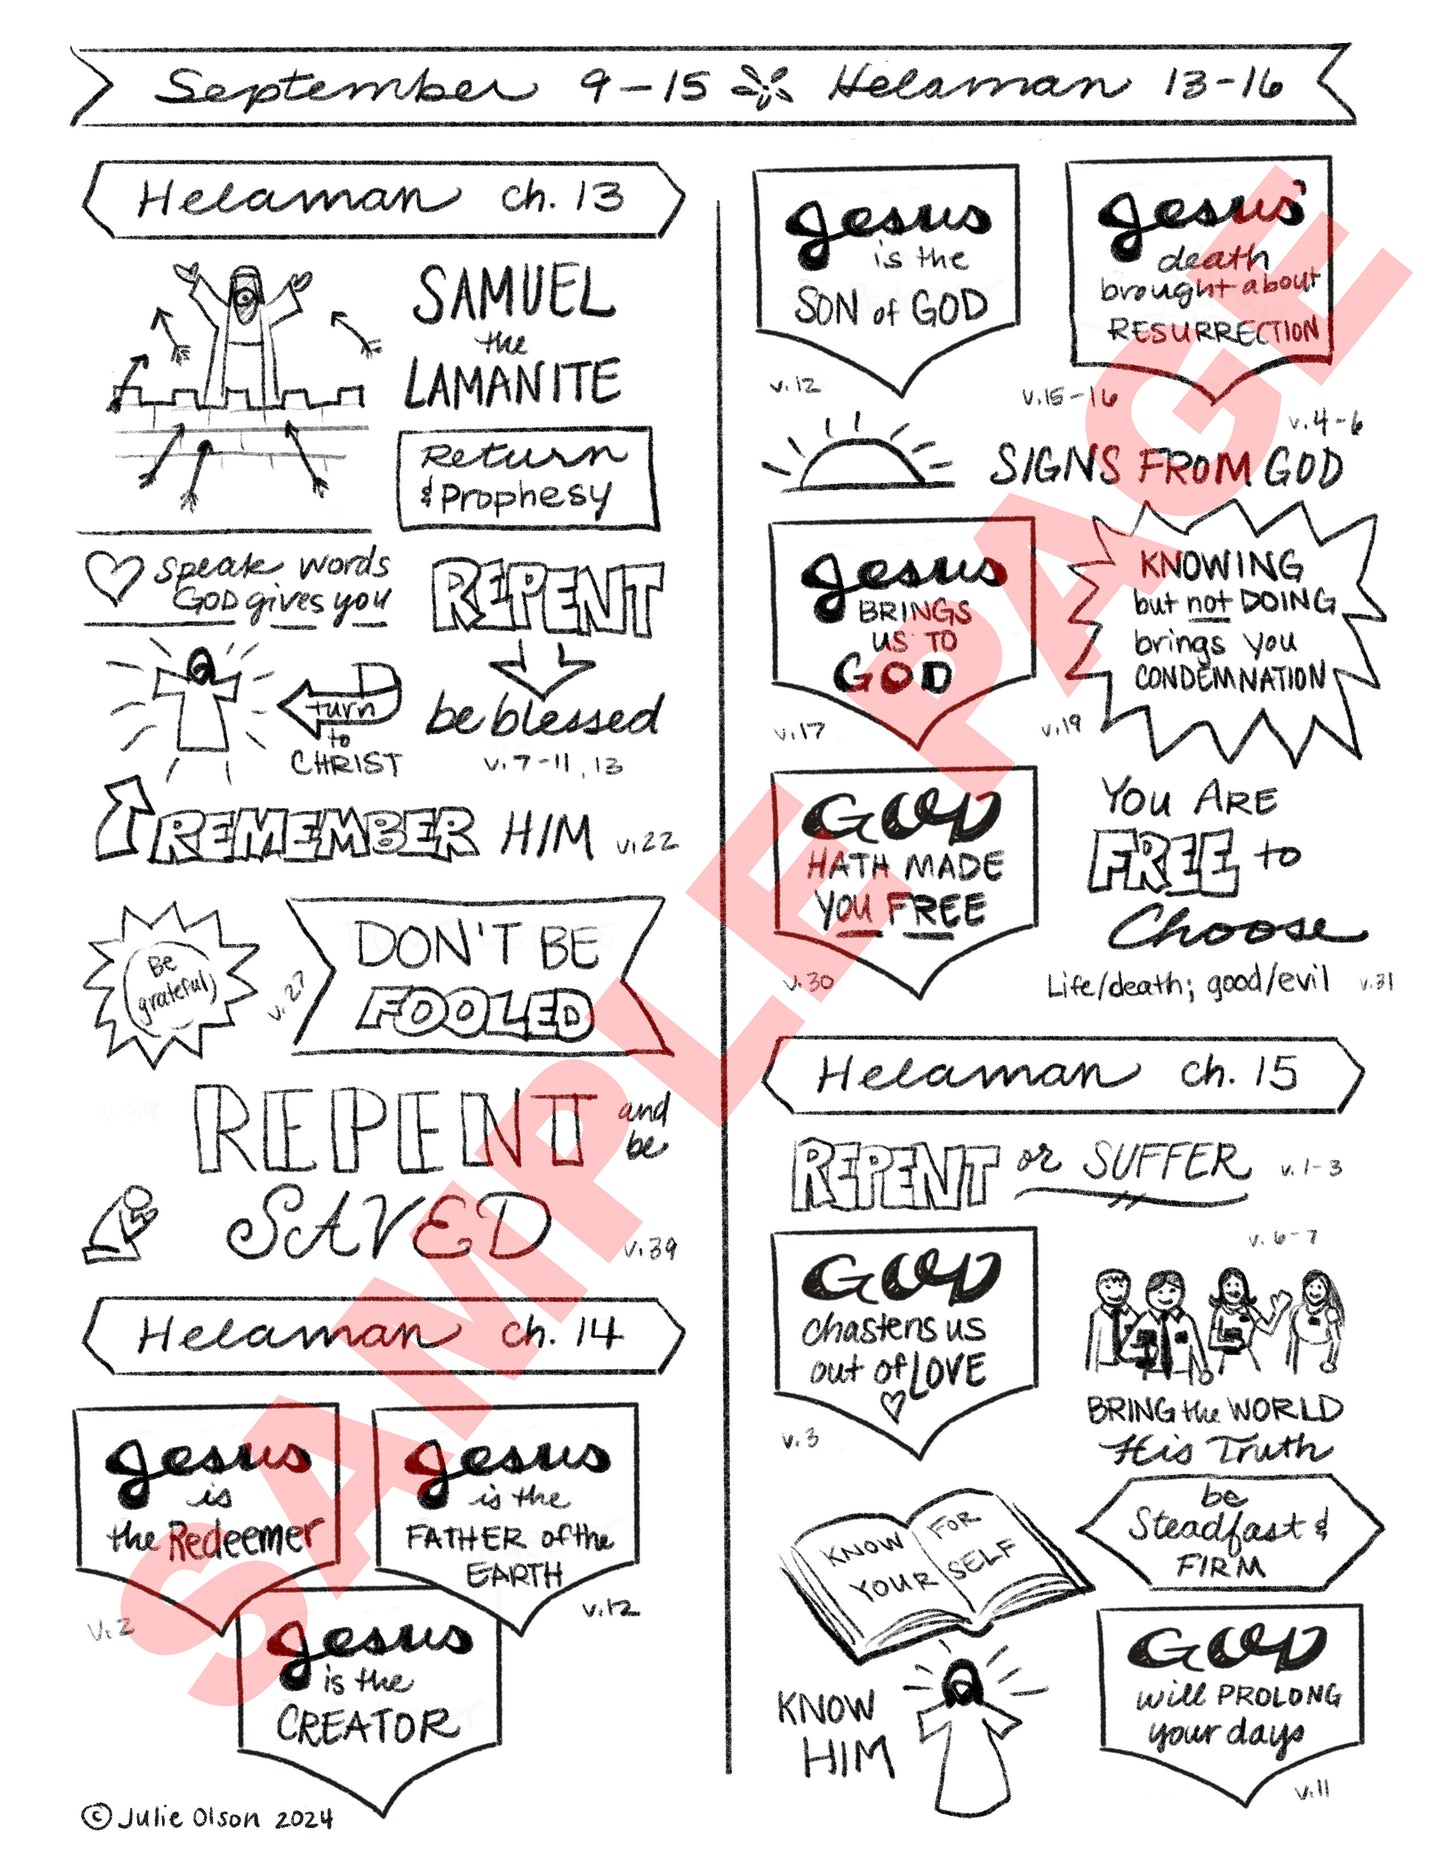 September 9-15 Helaman 13-16
Helaman ch. 13
SAMUEL
the
LAMANITE
Return
& Prophesy
Speak words
GOD gives you
REPENT
be blessed
v.7-11, 13
turn
to
CHRIST
REMEMBER HIM v.22
Be
grateful
v.27
DON'T BE
FOOLED
REPENT and
be
SAVED
v.39
Helaman ch. 14
Jesus
is
the Redeemer
v.2
Jesus
is the
FATHER of the
EARTH
v.12
Jesus
is the
CREATOR
© Julie Olson 2024
Jesus
is the
SON of GOD
v.12
Jesus'
death
brought about
RESURRECTION
v.15-16
v.4-6
SIGNS FROM GOD
Jesus
BRINGS
US TO
GOD
v.17
KNOWING
but not DOING
brings you
CONDEMNATION
v.19
GOD
HATH MADE
YOU FREE
v.30
YOU ARE
FREE to
Choose
Life/death; good/evil v.31
Helaman ch. 15
REPENT or SUFFER v.1-3
GOD
chastens us
out of LOVE
v.3
v.6-7
BRING the WORLD
His Truth
KNOW FOR
YOUR SELF
be
Steadfast &
FIRM
KNOW
HIM
GOD
will PROLONG
your days
v.11
SAMPLE PAGE